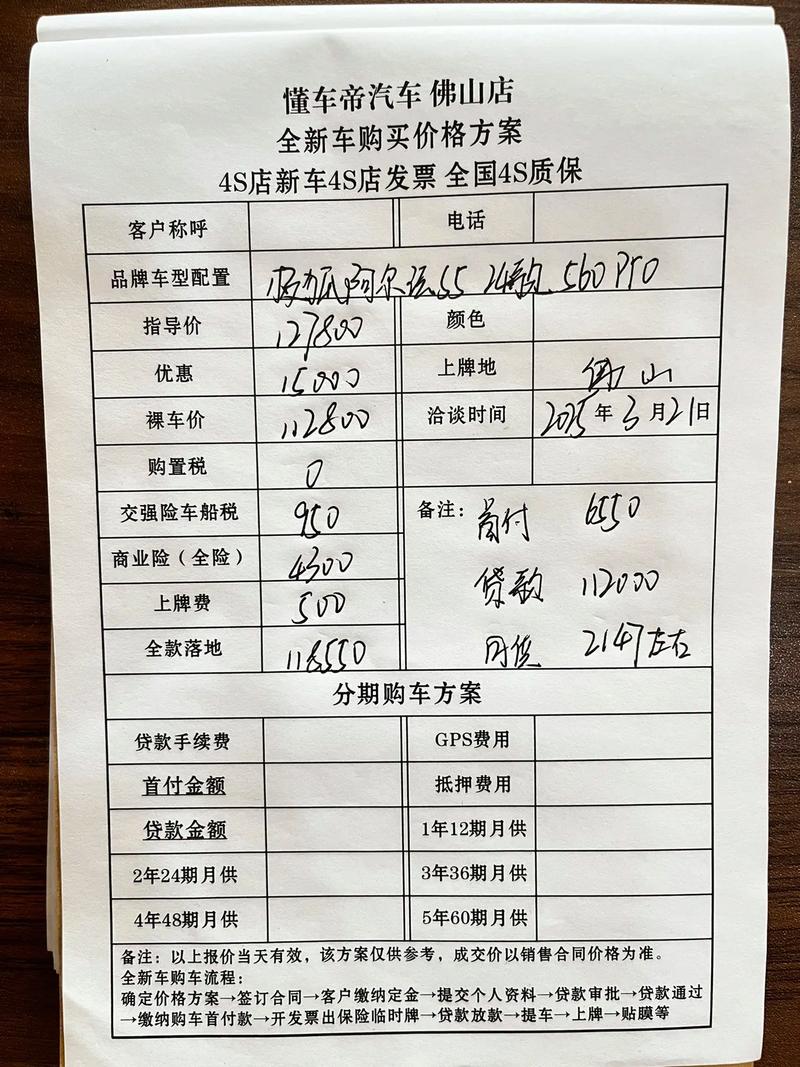 懂车帝汽车 佛山店
全新车购买价格方案
4S店新车4S店发票 全国4S质保
客户称呼 电话
品牌车型配置 极狐阿尔法S5 24款 560 Pro
指导价 127800 颜色
优惠 15000 上牌地 佛山
裸车价 112800 洽谈时间 2025年3月21日
购置税 0
交强险车船税 950 备注: 首付 6550
商业险(全险) 4300 贷款 112000
上牌费 500
全款落地 118550 月供 2147左右
分期购车方案
贷款手续费 GPS费用
首付金额 抵押费用
贷款金额 1年12期月供
2年24期月供 3年36期月供
4年48期月供 5年60期月供
备注:以上报价当天有效,该方案仅供参考,成交价以销售合同价格为准。
全新车购车流程:
确定价格方案→签订合同→客户缴纳定金→提交个人资料→贷款审批→贷款通过
→缴纳购车首付款→开发票出保险临时牌→贷款放款→提车→上牌→贴膜等